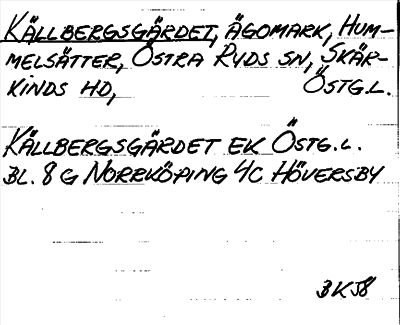 KÄLLBERGSGÄRDET, ÄGOMARK, HUM-
MELSÄTTER, ÖSTRA RYDS SN, SKÄR-
KINDS HD, ÖSTG.L.
KÄLLBERGSGÄRDET EK ÖSTG.L.
BL. 8 G NORRKÖPING 4C HÖVERSBY
BK58